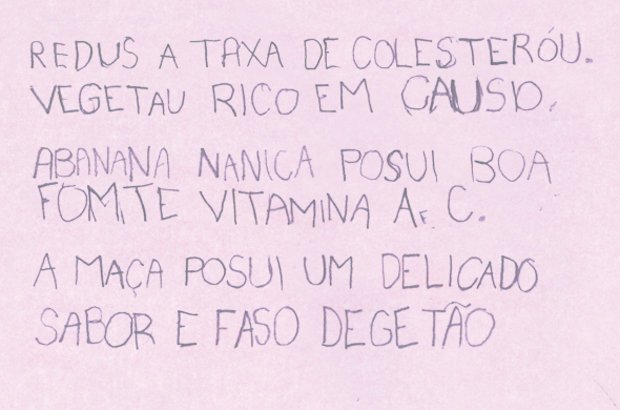 REDUS A TAXA DE COLESTERÓU.
VEGETAU RICO EM CAUSIO.
ABANANA NANICA POSUI BOA
FOMTE VITAMINA A E C.
A MAÇA POSUI UM DELICADO
SABOR E FASO DEGETÃO